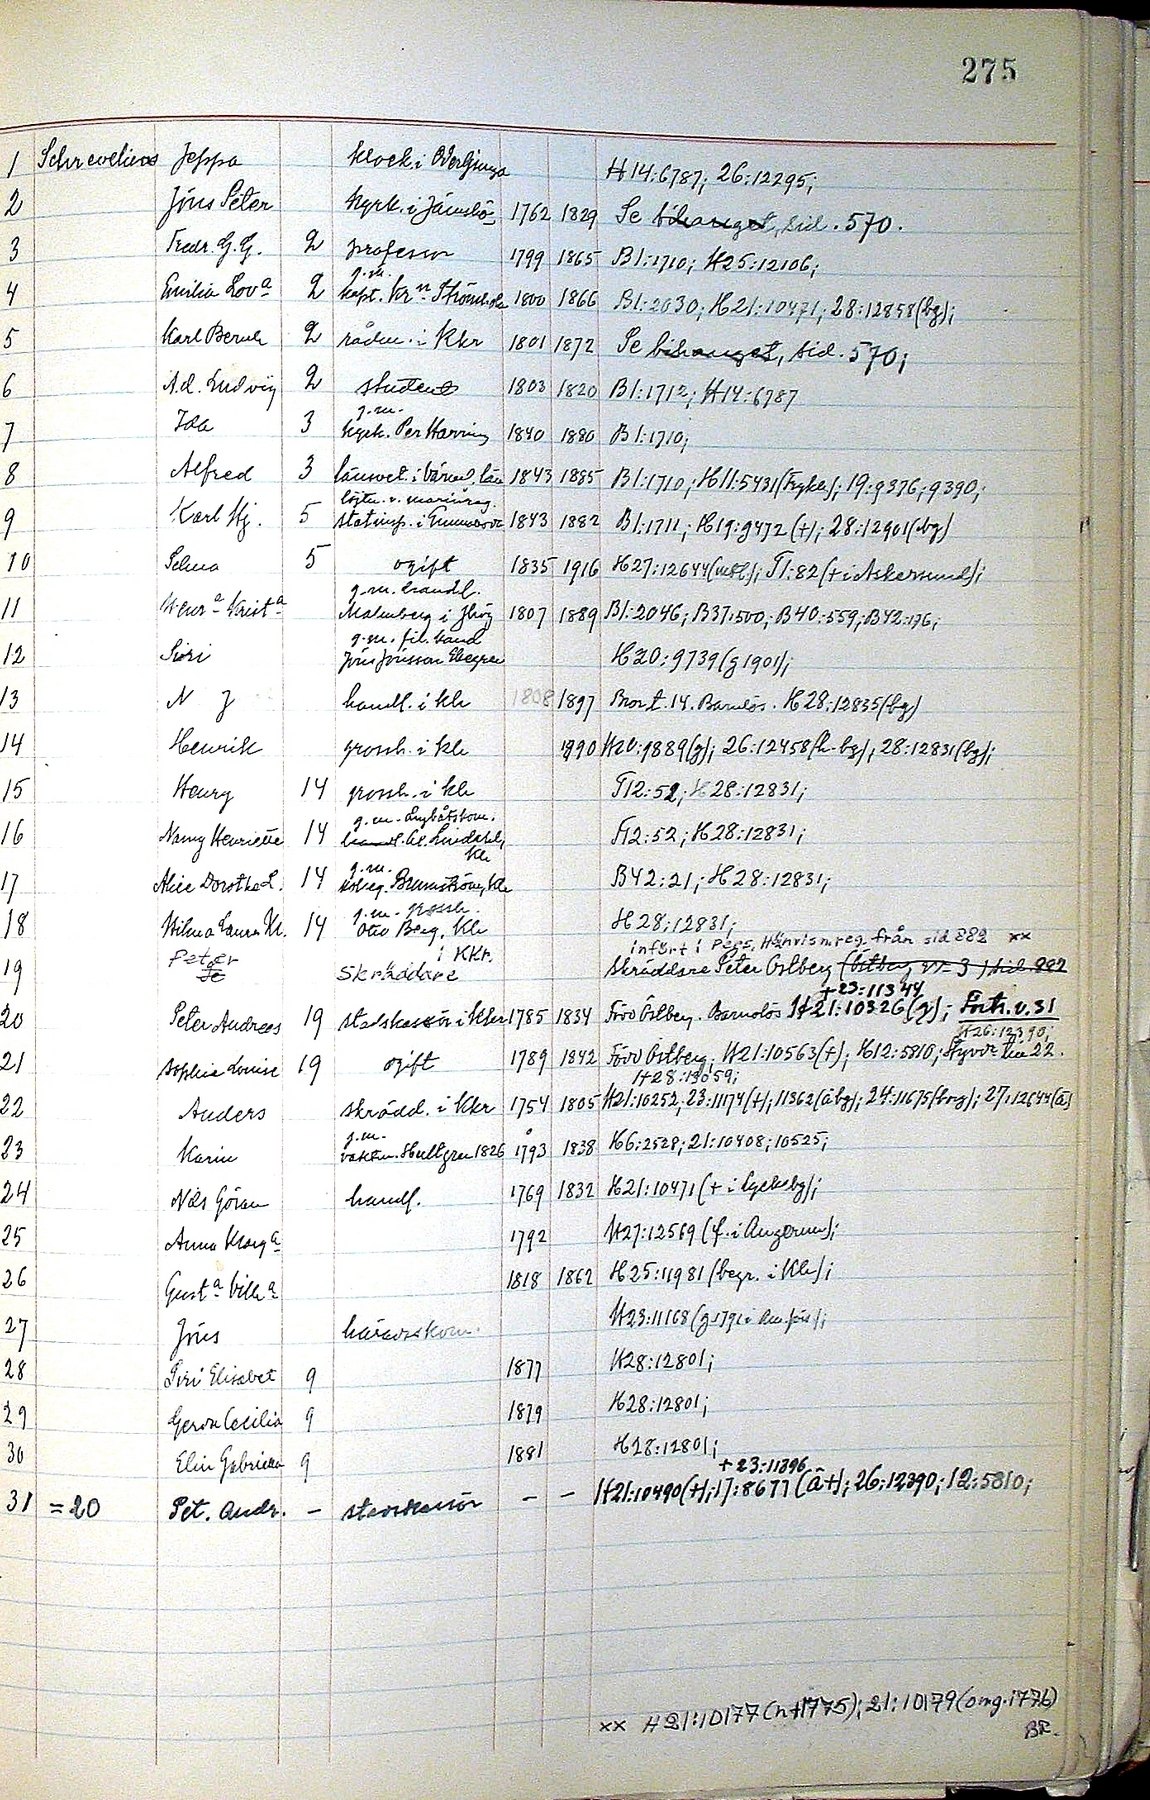 275
1 Schrevelius Jeppa klock. i H14:6787; 26:12295;
2 Jöns Peter kyrk. i Jämshög 1762 1829 Se bihanget, sid. 570.
3 Fredr. G. G. 2 professor 1799 1865 B1:1710; H25:12106;
g.m.
4 Emilia Lov:a 2 kapt. Kr:n 1800 1866 B1:2030; H21:10471; 28:12858(bg);
5 Karl Bernh 2 rådm. i Kkr 1801 1872 Se bihanget, sid. 570;
6 Ad. Ludvig 2 student 1803 1820 B1:1712; H14:6787
g.m.
7 Ida 3 kyrk. Per Harring 1840 1880 B1:1710;
8 Alfred 3 länsvet. i Värml. län 1843 1885 B1:1710; H11:5431(Fryken); 19:9376; 9390;
löjtn. v. marinreg.
9 Karl Hj. 5 statinsp. i 1843 1882 B1:1711; H19:9472 (+); 28:12901(bg)
10 Selma 5 ogift 1835 1916 H27:12644 T1:82(+ i Askersund);
g.m. handl.
11 Henr:a Krist:a Malmberg i 1807 1889 B1:2046; B37:500; B40:559; B42:176;
g.m. fil. kand
12 Siri Jöns Jönsson H20:9739(g 1901);
13 N J handl. i Kh 1808 1897 Bror t. 14. Barnlös. H28:12835(bg)
14 Henrik grossh. i Kh 1890 H20:9889(g); 26:12458(h-bg); 28:12831(bg);
15 Henry 14 grossh. i Kh T12:52; H28:12831;
g.m. ångbåtskom.
16 Nanny Henriette 14 handl. Al. Lindahl, Kh T12:52; H28:12831;
g.m.
17 Alice Dorothea L. 14 Brunström, Kh B42:21; H28:12831;
g.m. grossh.
18 Hilma Laura M. 14 Otto Berg, Kh H28:12831;
infört i Pers. Hänvisn.reg. från sid 882 xx
19 Peter Skräddare i KKr. Skräddare Peter Östberg (Östberg nr 3) sid. 882
+23:11344
20 Peter Andreas 19 stadskassör i Kkr 1785 1834 Förr Östberg. Barnlös H21:10326(g); Forts. v. 31
H26:12390;
21 Sophie Louise 19 ogift 1789 1842 Förr Östberg. H21:10563(+); H12:5810; Styvdr till 22.
H28:13059;
22 Anders skrädd. i Kkr 1754 1805 H21:10252; 23:11174(+); 11362(åbg); 24:11675(borg); 27:12644(å)
g.m.
23 Karin vaktm. Hultgren 1826 1793 1838 H6:2528; 21:10408; 10525;
24 Nils Göran handl. 1769 1832 H21:10471(+ i Lyckebg);
25 Anna Marg:a 1792 H27:12569 (f. i Augerum);
26 Gust:a Vilh:a 1818 1862 H25:11981 (begr. i Kh);
27 Jöns häradsskom. H23:11168
28 Siri Elisabet 9 1877 H28:12801;
29 Gerda Cecilia 9 1879 H28:12801;
30 Elin Gabriella 9 1881 H28:12801;
+23:11396
31 =20 Pet. Andr. – stadskassör – – H21:10490(+); 17:8677(å+); 26:12390; 12:5810;
xx H21:10177(n+1775); 21:10179(omg. 1776)
BR.